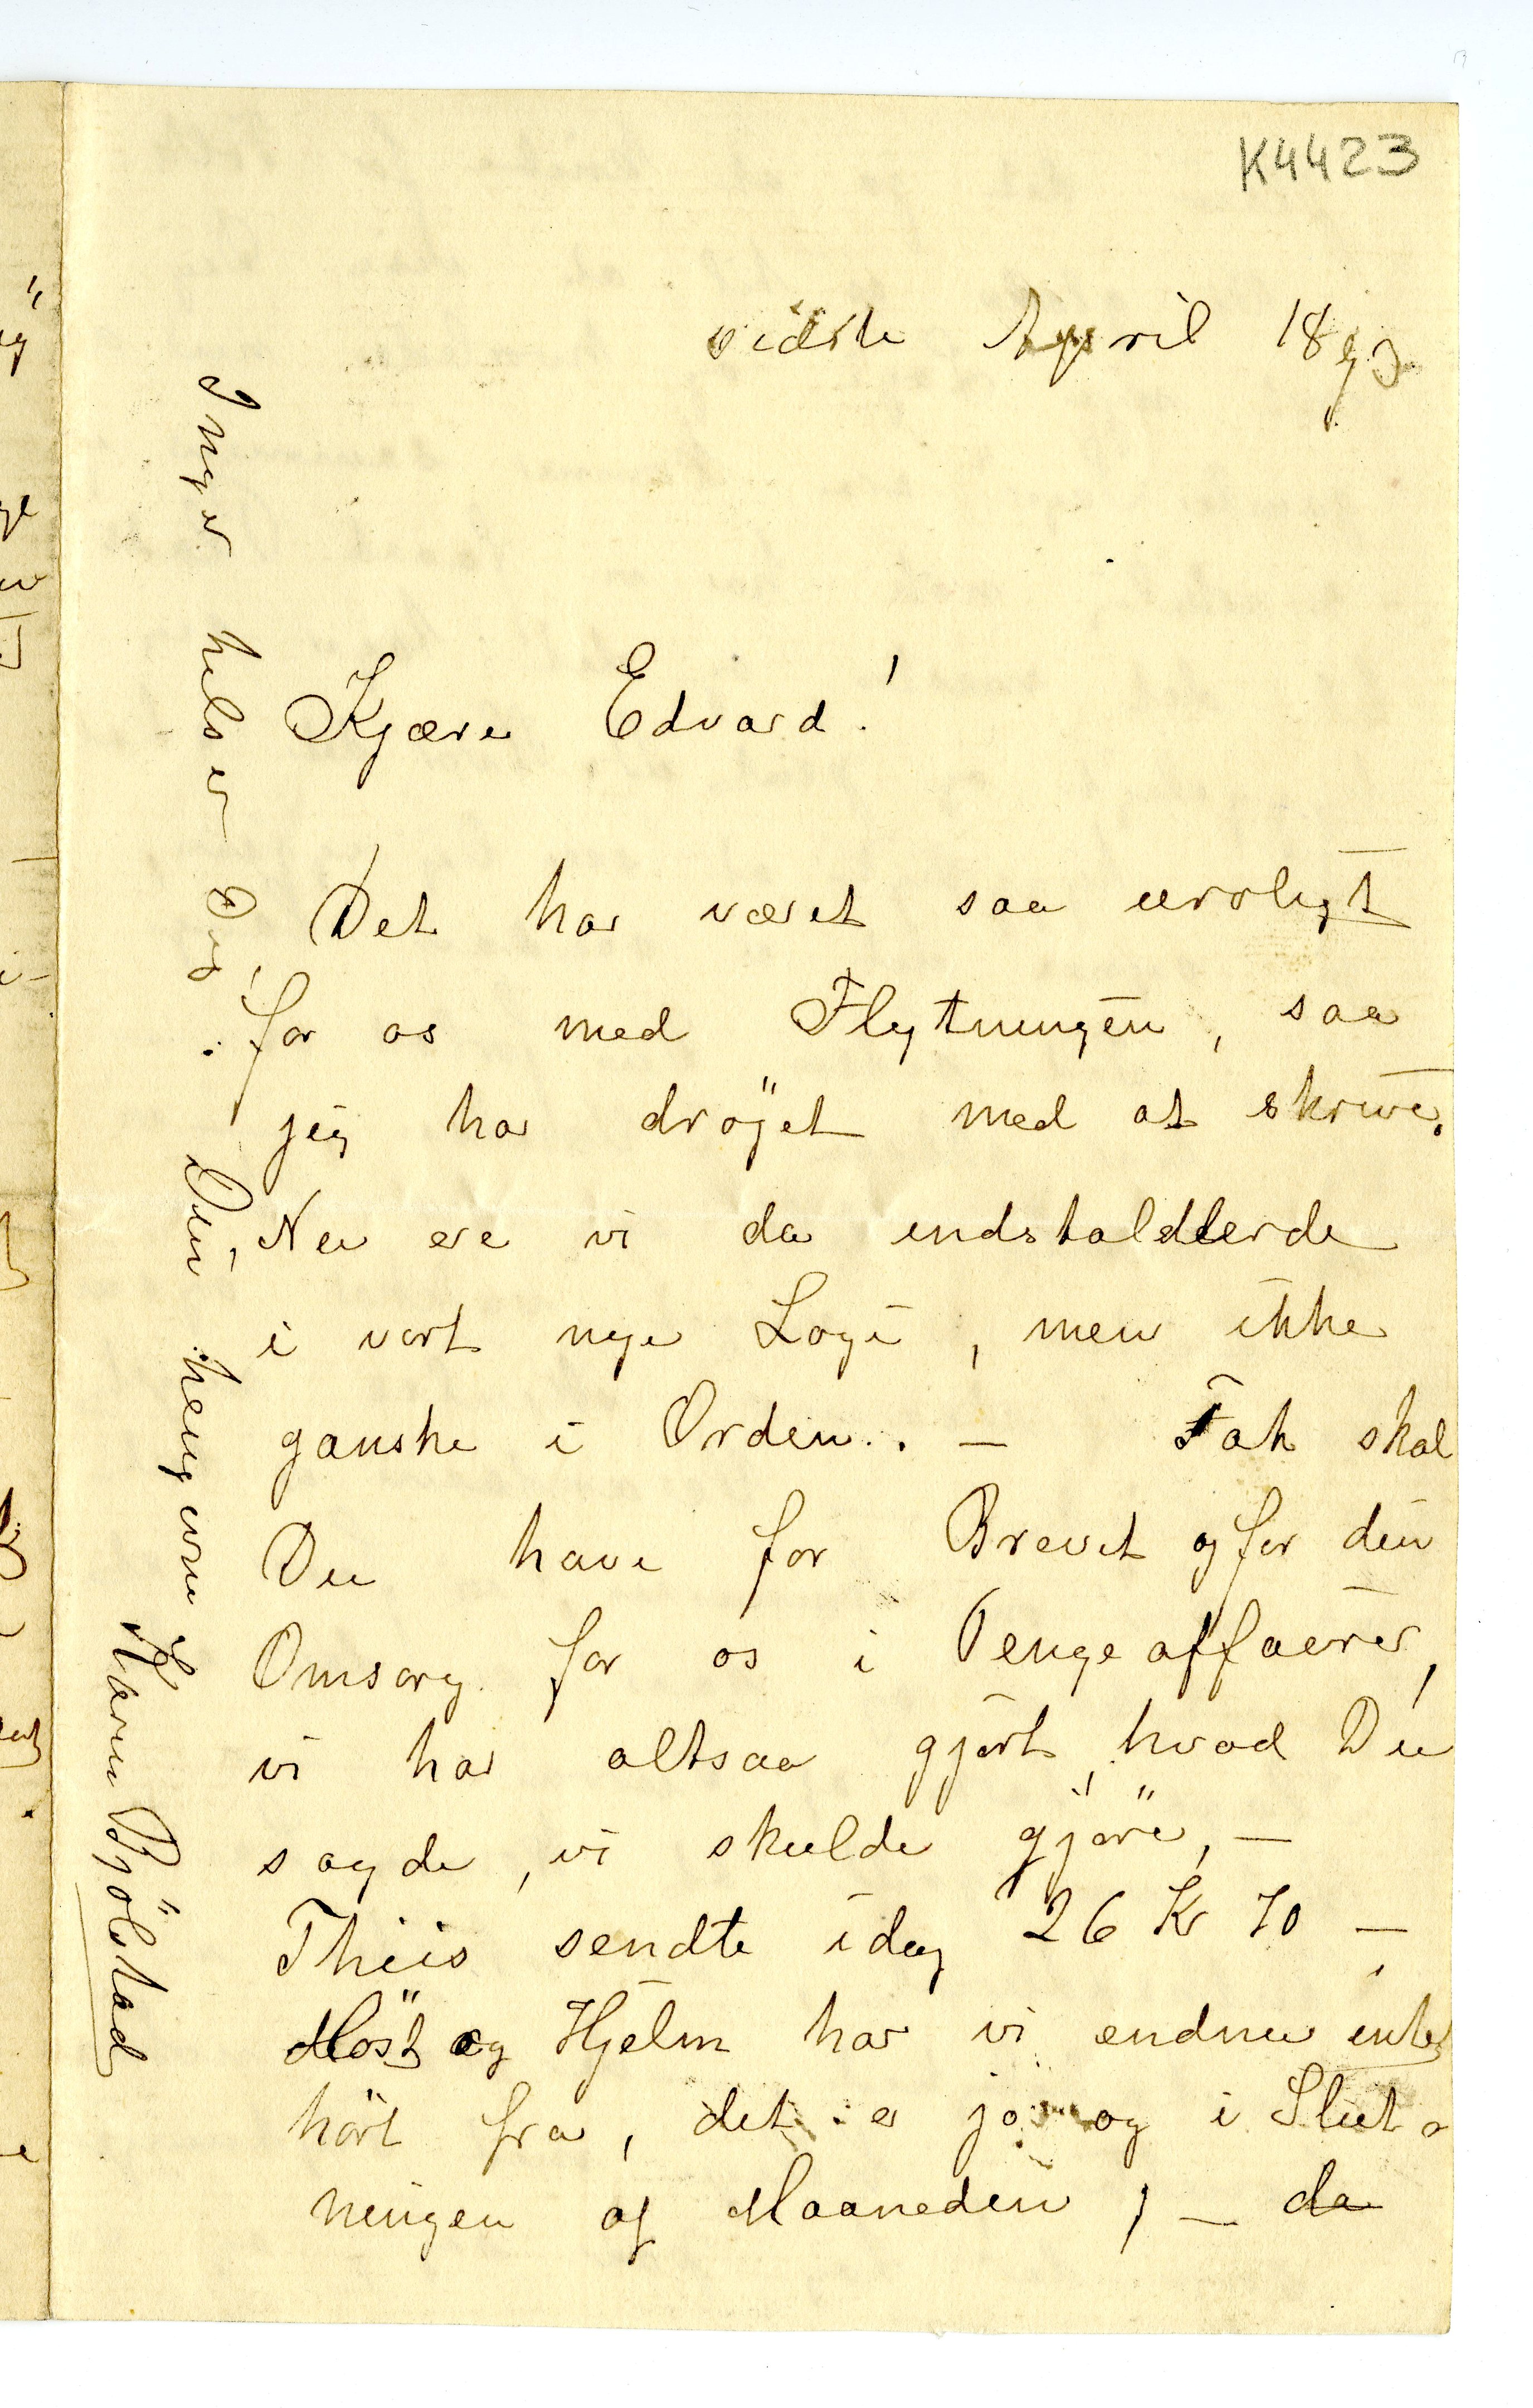 K4423
sidste April 1893
Kjære Edvard!
Det har været saa uroligt
for os med Flytningen, saa
jeg har drøjet med at skrive.
Nu ere vi da indstalderde
i vort nye Logi, men ikke
ganske i Orden. – Tak skal
Du have for Brevet og for din
Omsorg for os i Pengeaffærer,
vi har altsaa gjørt, hvad Du
sagde, vi skulde gjøre, –
Thiis sendte idag 26 Kr 70 –
Møst og Hjelm har vi endnu intet
hört fra, det er jo og i Slut-
ningen af Maaneden, – da
Inger helser Dig.
Din hengivne
Karen Bjölstad